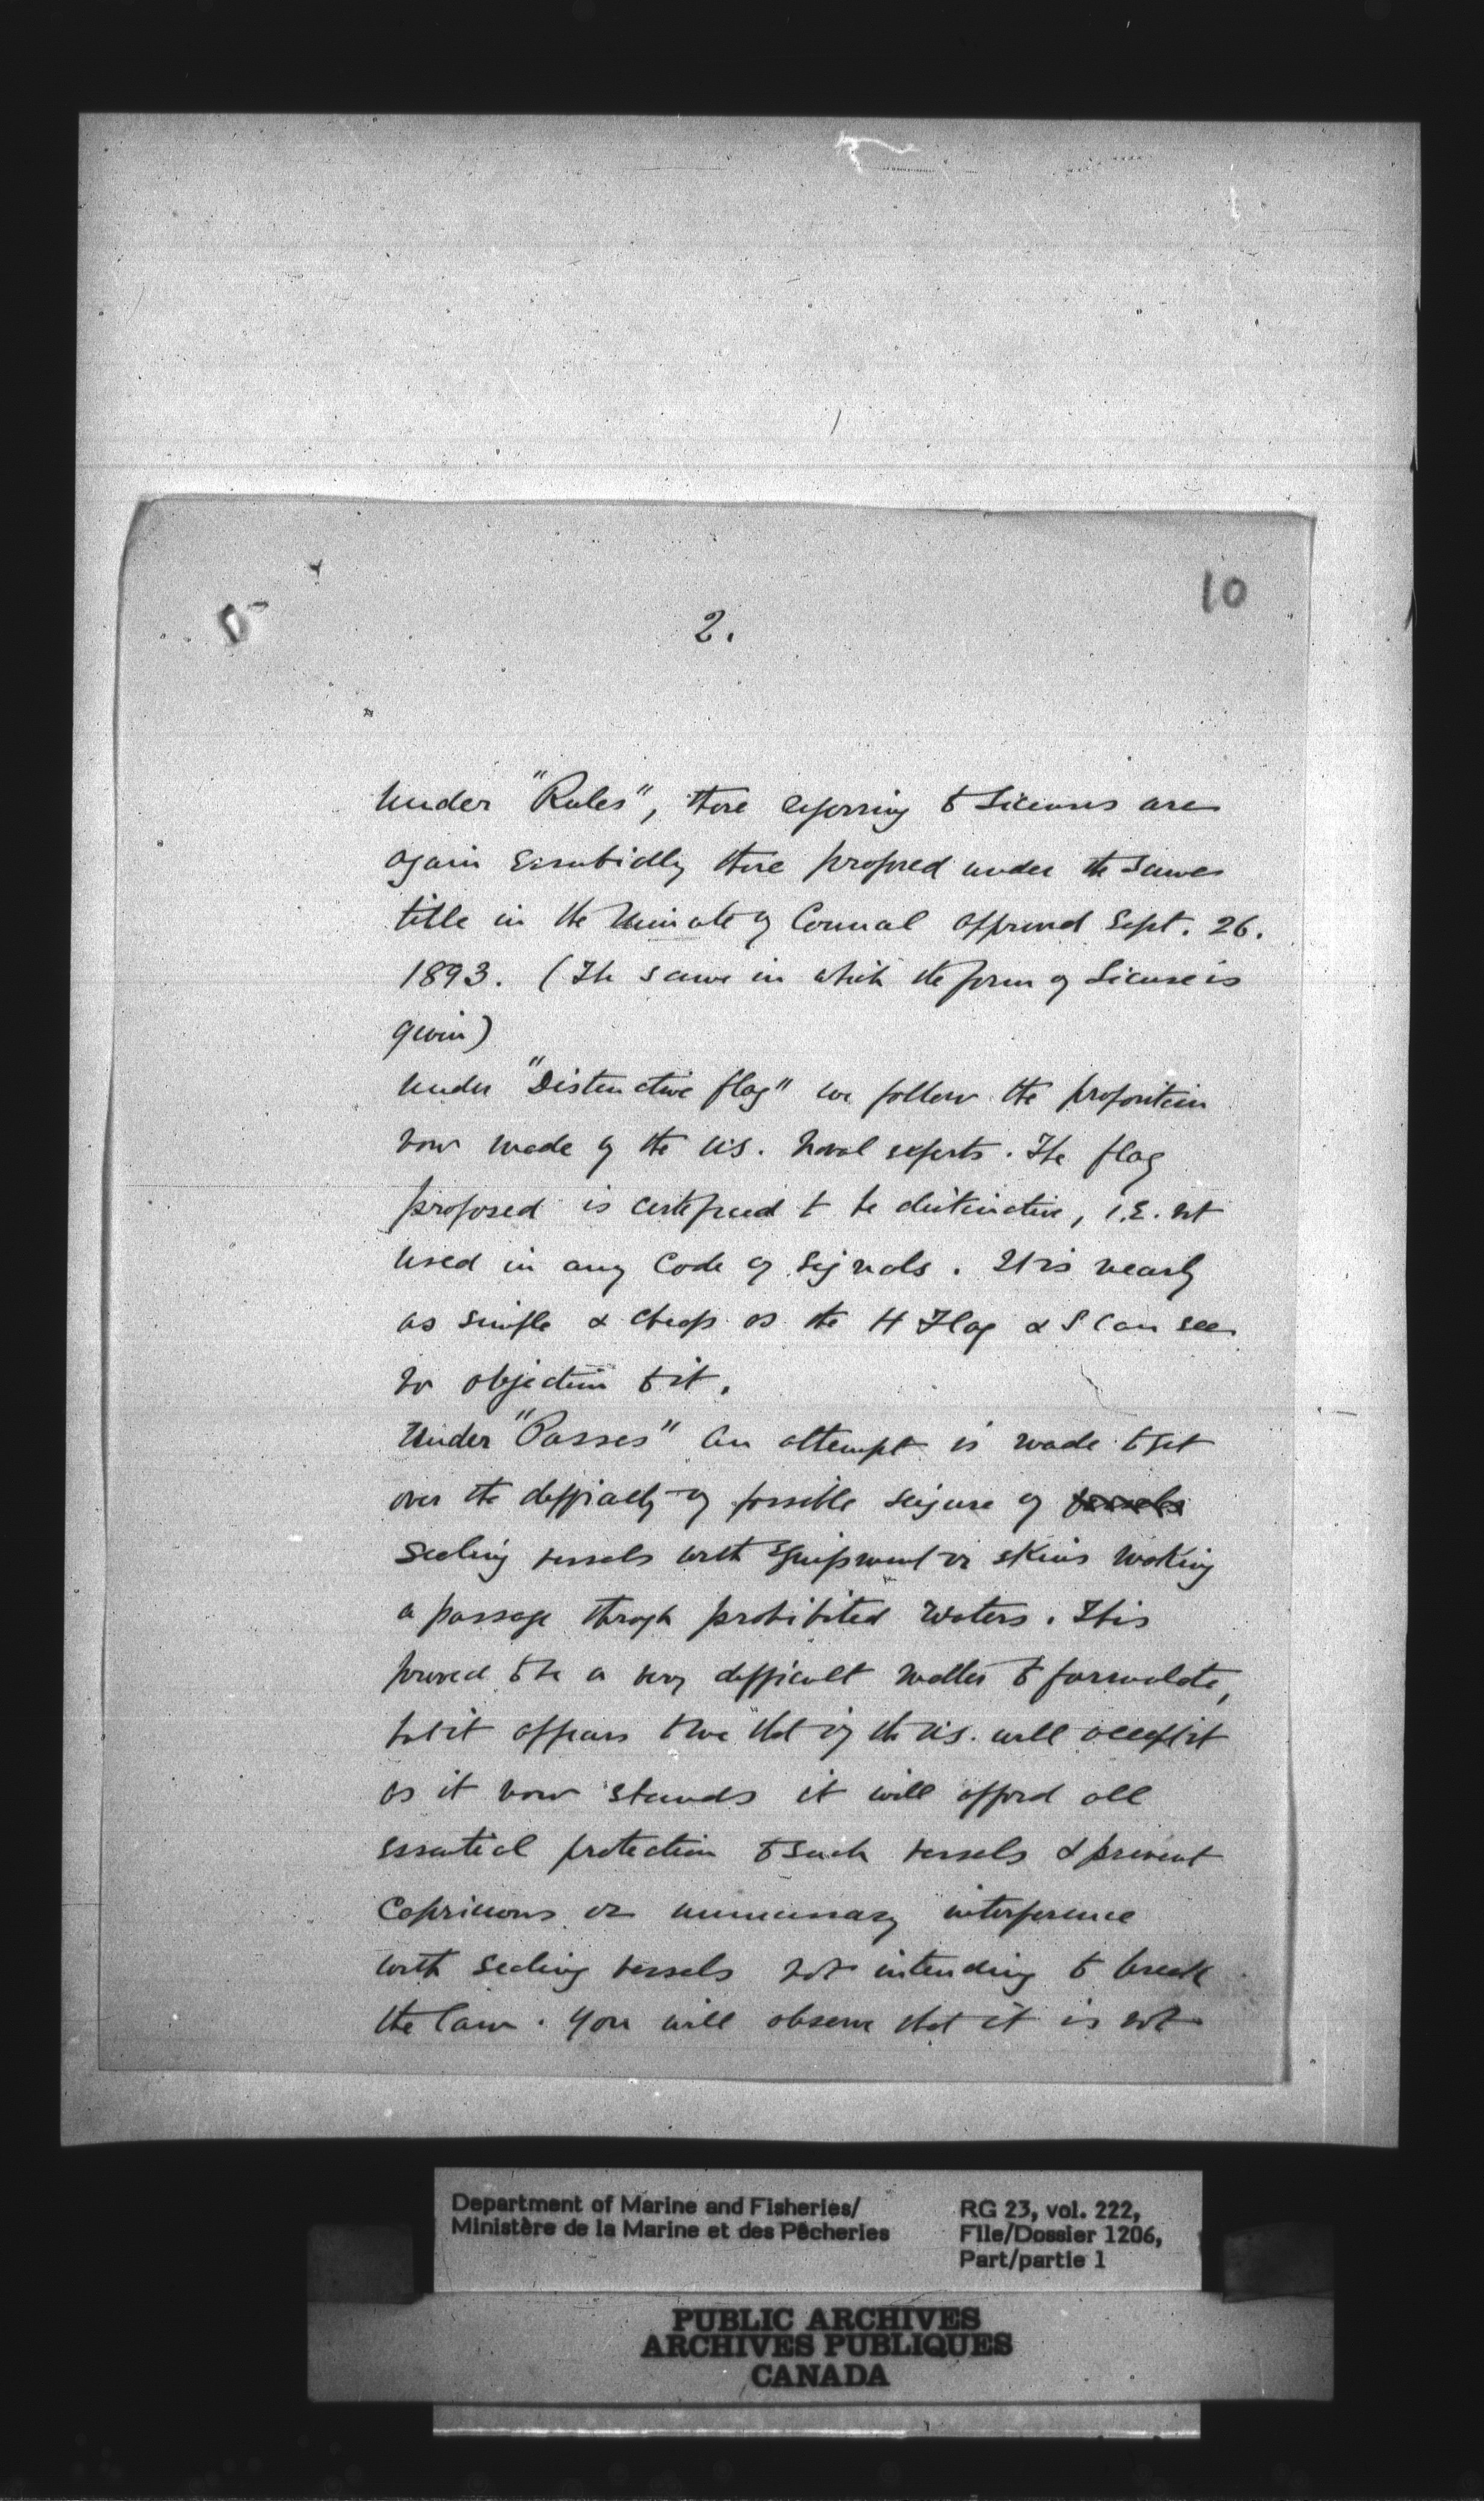 10
2.
Under "Rules", those referring to Licenses are
again essentially those proposed under the same
title in the Minute of Council approved Sept. 26.
1893. (The same in which the form of License is
given)
Under "Distinctive flag" we follow the proposition
now made by the U.S. Naval experts. The flag
proposed is certified to be distinctive, i.e. not
used in any Code of Signals. It is nearly
as simple & cheap as the H Flag & I can see
no objection to it.
Under "Passes" an attempt is made to get
over the difficulty of possible seizure of vessels
Sealing vessels with equipment or skins making
a passage through prohibited waters. This
proved to be a very difficult matter to formulate,
but it appears to me that if the U.S. will accept it
as it now stands it will afford all
essential protection to such vessels & prevent
Capricious or unnecessary interference
with Sealing vessels not intending to break
the law. You will observe that it is not
Department of Marine and Fisheries/
Ministère de la Marine et des Pêcheries
RG 23, vol. 222,
File/Dossier 1206,
Part/partie 1
PUBLIC ARCHIVES
ARCHIVES PUBLIQUES
CANADA